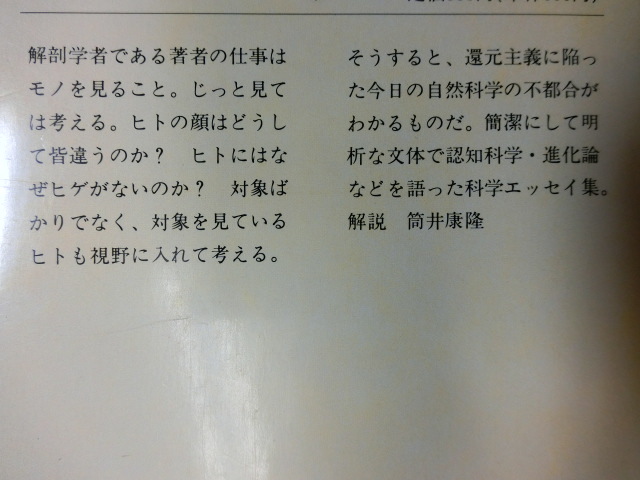 解剖学者である著者の仕事は
モノを見ること。じっと見て
は考える。ヒトの顔はどうし
て皆違うのか？　ヒトにはな
ぜヒゲがないのか？　対象ば
かりでなく、対象を見ている
ヒトも視野に入れて考える。
そうすると、還元主義に陥っ
た今日の自然科学の不都合が
わかるものだ。簡潔にして明
晰な文体で認知科学・進化論
などを語った科学エッセイ集。
解説　筒井康隆